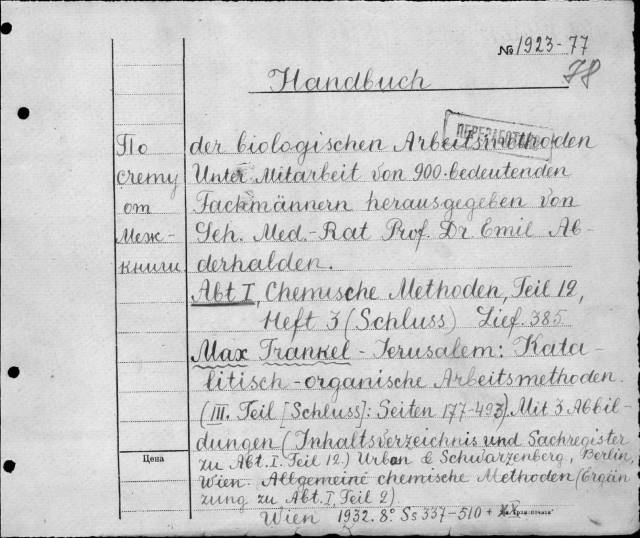 № 1923-77
78
Handbuch
ПЕРЕРАБОТАНО
По
счету
от
Меж-
книги
der biologischen Arbeitsmethoden
Unter Mitarbeit von 900 bedeutenden
Fackmännern herausgegeben von
Geh. Med.-Rat Prof. Dr. Emil Ab-
derhalden.
Abt I, Chemische Methoden, Teil 12,
Heft 3 (Schluss) Lief. 385
Max Frankel - Jerusalem: Kata-
litisch-organische Arbeitsmethoden.
(III. Teil [Schluss]: Seiten 177-493). Mit 3 Abbil-
dungen (Inhaltsverzeichnis und Sachregister
Цена
zu Abt. I. Teil 12.) Urban & Schwarzenberg, Berlin,
Wien. Allgemeine chemische Methoden (Ergän
zung zu Abt. I, Teil 2).
Wien 1932. 8° Ss 337-510 + XX